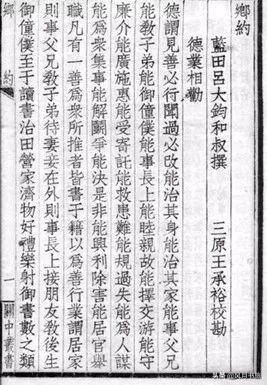 鄉約
藍田呂大鈞和叔撰 三原王承裕校勘
德業相勸
德謂見善必行聞過必改能治其身能治其家能事父兄
能教子弟能御僮僕能事長上能睦親故能擇交遊能守
廉介能廣施惠能受寄託能救患難能規過失能為人謀
能為眾集事能解鬭爭能決是非能興利除害能居官舉
職凡有一善為眾所推者皆書于籍以為善行業謂居家
則事父兄教子弟待妻妾在外則事長上接朋友教後生
御僮僕至于讀書治田營家濟物好禮樂射御書數之類
鄉約 一 關中叢書